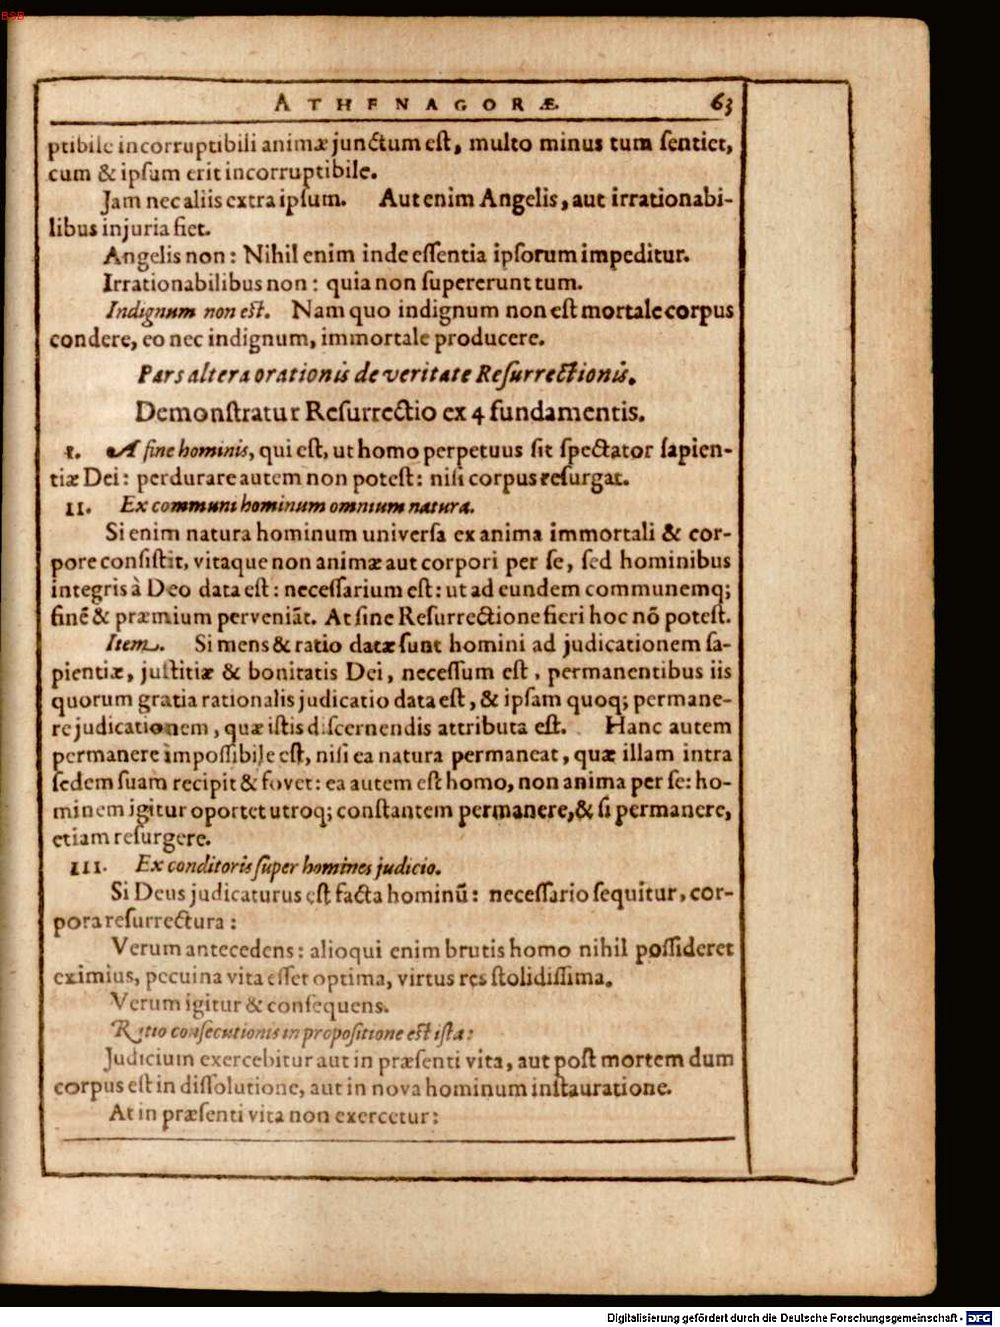 BSB
ATHENAGORÆ 63
ptibile incorruptibili animæ junctum est, multo minus tum sentiet,
cum & ipsum erit incorruptibile.
Jam nec aliis extra ipsum. Aut enim Angelis, aut irrationabi-
libus injuria fiet.
Angelis non: Nihil enim inde essentia ipsorum impeditur.
Irrationabilibus non: quia non supererunt tum.
Indignum non est. Nam quo indignum non est mortale corpus
condere, eo nec indignum, immortale producere.
Pars altera orationis de veritate Resurrectionis.
Demonstratur Resurrectio ex 4 fundamentis.
I. A fine hominis, qui est, ut homo perpetuus sit spectator sapien-
tiæ Dei: perdurare autem non potest: nisi corpus resurgat.
II. Ex communi hominum omnium natura.
Si enim natura hominum universa ex anima immortali & cor-
pore consistit, vitaque non animæ aut corpori per se, sed hominibus
integris à Deo data est: necessarium est: ut ad eundem communemq;
finē & præmium perveniāt. At sine Resurrectione fieri hoc nō potest.
Item. Si mens & ratio datæ sunt homini ad judicationem sa-
pientiæ, justitiæ & bonitatis Dei, necessum est, permanentibus iis
quorum gratia rationalis judicatio data est, & ipsam quoq; permane-
re judicationem, quæ istis discernendis attributa est. Hanc autem
permanere impossibile est, nisi ea natura permaneat, quæ illam intra
sedem suam recipit & fovet: ea autem est homo, non anima per se: ho-
minem igitur oportet utroq; constantem permanere, & si permanere,
etiam resurgere.
III. Ex conditoris super homines judicio.
Si Deus judicaturus est facta hominū: necessario sequitur, cor-
pora resurrectura:
Verum antecedens: alioqui enim brutis homo nihil possideret
eximius, pecuina vita esset optima, virtus res stolidissima.
Verum igitur & consequens.
Ratio consecutionis in propositione est ista:
Judicium exercebitur aut in præsenti vita, aut post mortem dum
corpus est in dissolutione, aut in nova hominum instauratione.
At in præsenti vita non exercetur:
Digitalisierung gefördert durch die Deutsche Forschungsgemeinschaft - DFG